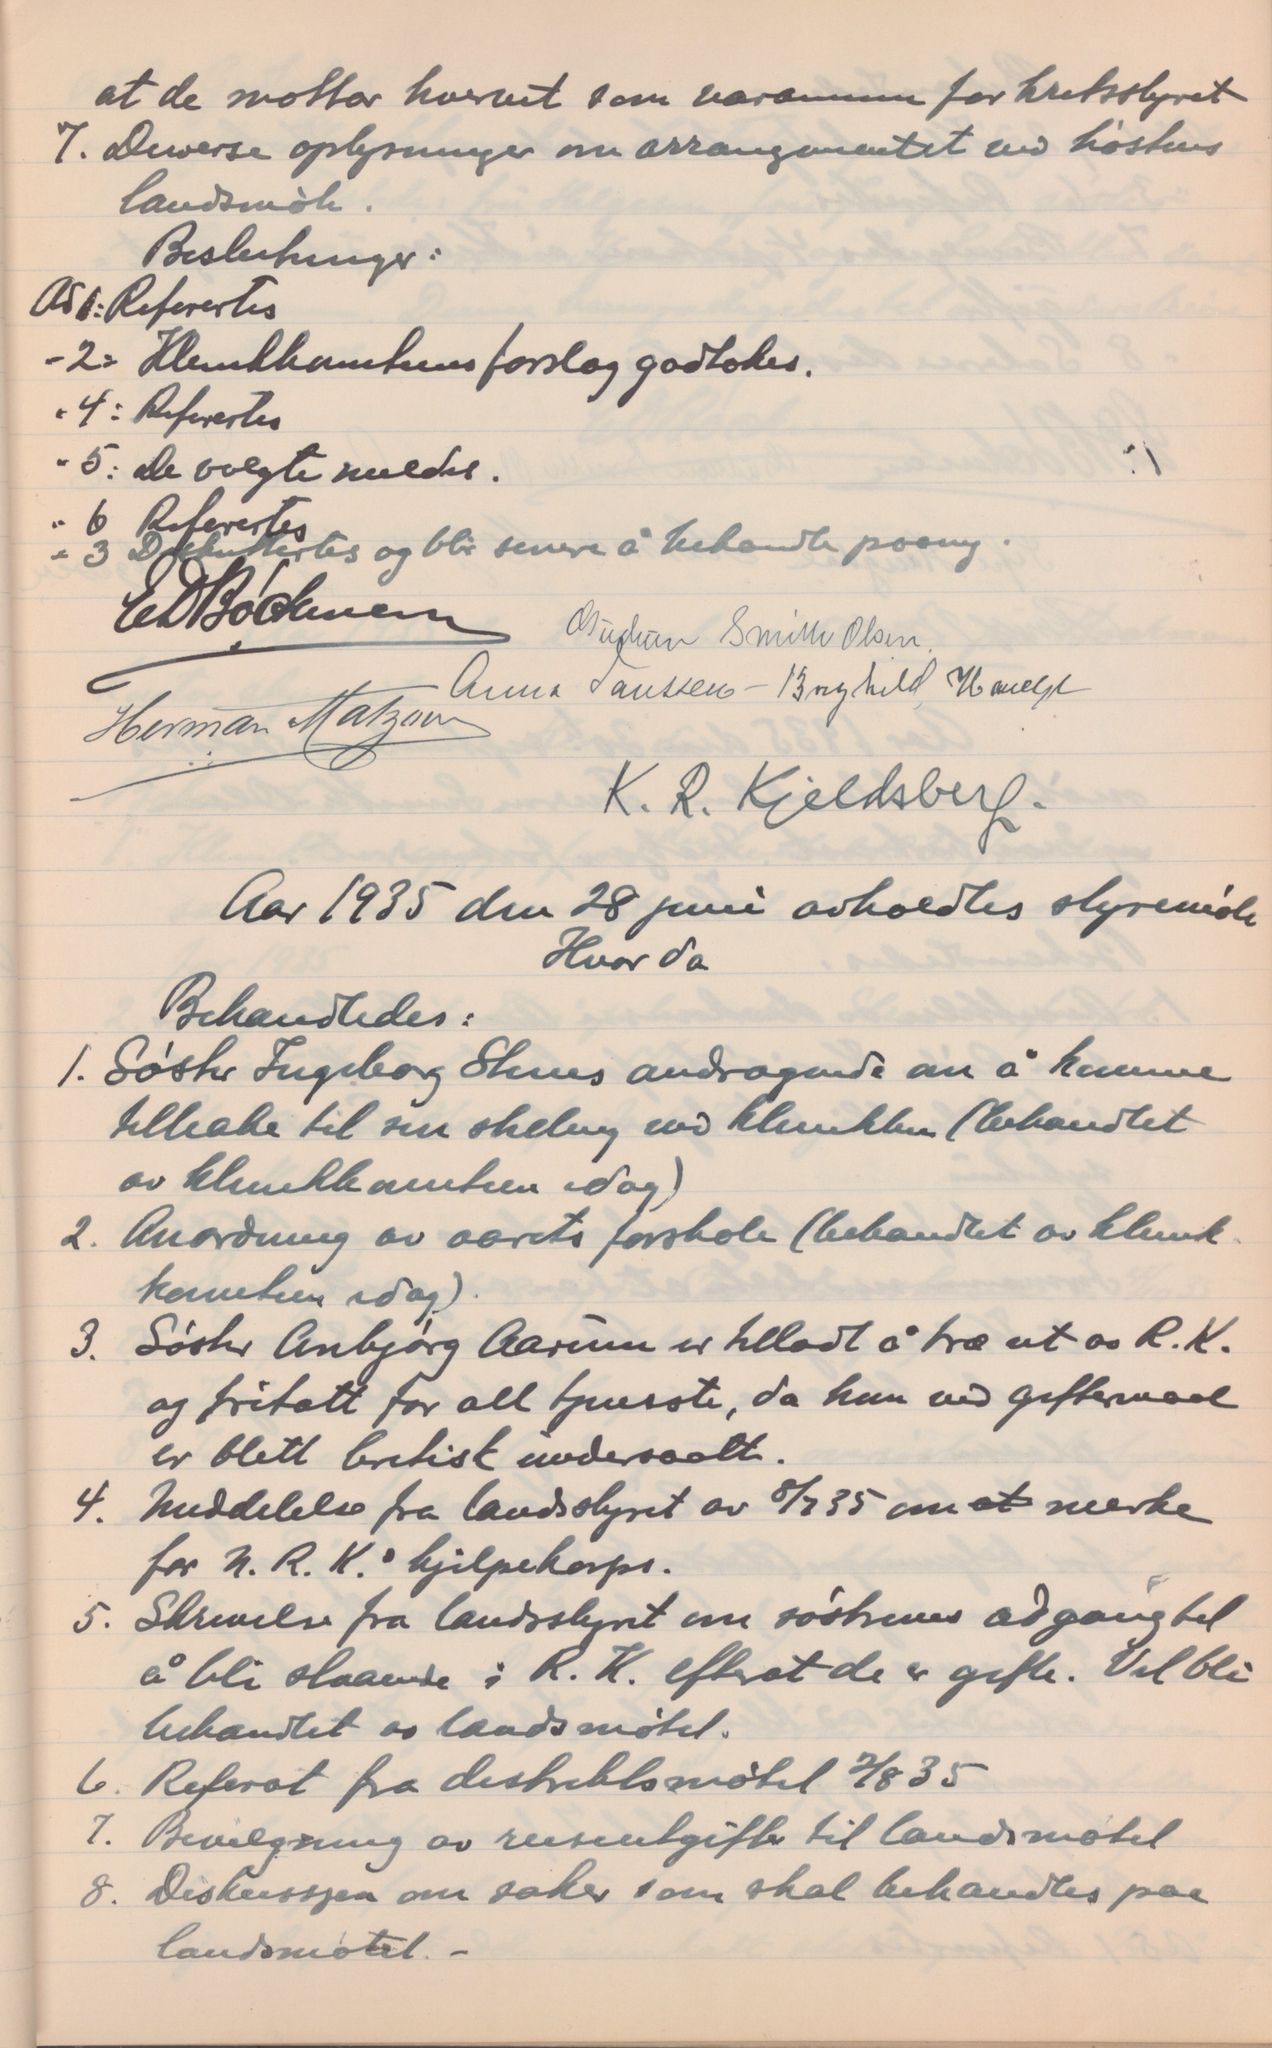 at de mottar hvervet som varamenn for kretsstyret
7. Diverse oplysninger om arrangementet ved høstens
landsmøte.
Beslutninger:
Ad 1: Refertes
- 2: Klinikkomiteens forslag godtokes.
" 4: Refertes
" 5: De valgte meldes.
" 6 Refertes
" 3 Diskutertes og blir senere å behandle paany.
E D Bøckmann
Gudrun Smith Olsen.
Anna Janssen - Borghild
Herman Matzow
K. R. Kjeldsberg.
Aar 1935 den 28 juni avholdtes styremøte
Hvor da
Behandledes:
1. Søster Ingeborg andragende om å komme
tilbake til sin stilling ved klinikken (behandlet
av klinikkomiteen idag)
2. Anordning av aarets forskole (behandlet av klinik-
komiteen idag).
3. Søster Anbjørg Aarum er tilladt å træ ut av R. K.
og fritatt for all tjeneste, da hun ved giftermaal
er blitt britisk undersaatt.
4. Meddelelse fra landsstyret av 8/7 35 om et merke
for N. R. K.s hjelpekorps.
5. Skrivelse fra landsstyret om søstrenes adgang til
å bli staaende i R. K. efterat de er gifte. Vil bli
behandlet av landsmøtet.
6. Referat fra distriktsmøtet 2/8 35
7. Bevilgning av reiseutgifter til landsmøtet
8. Diskussjon om saker som skal behandles paa
landsmøtet. -